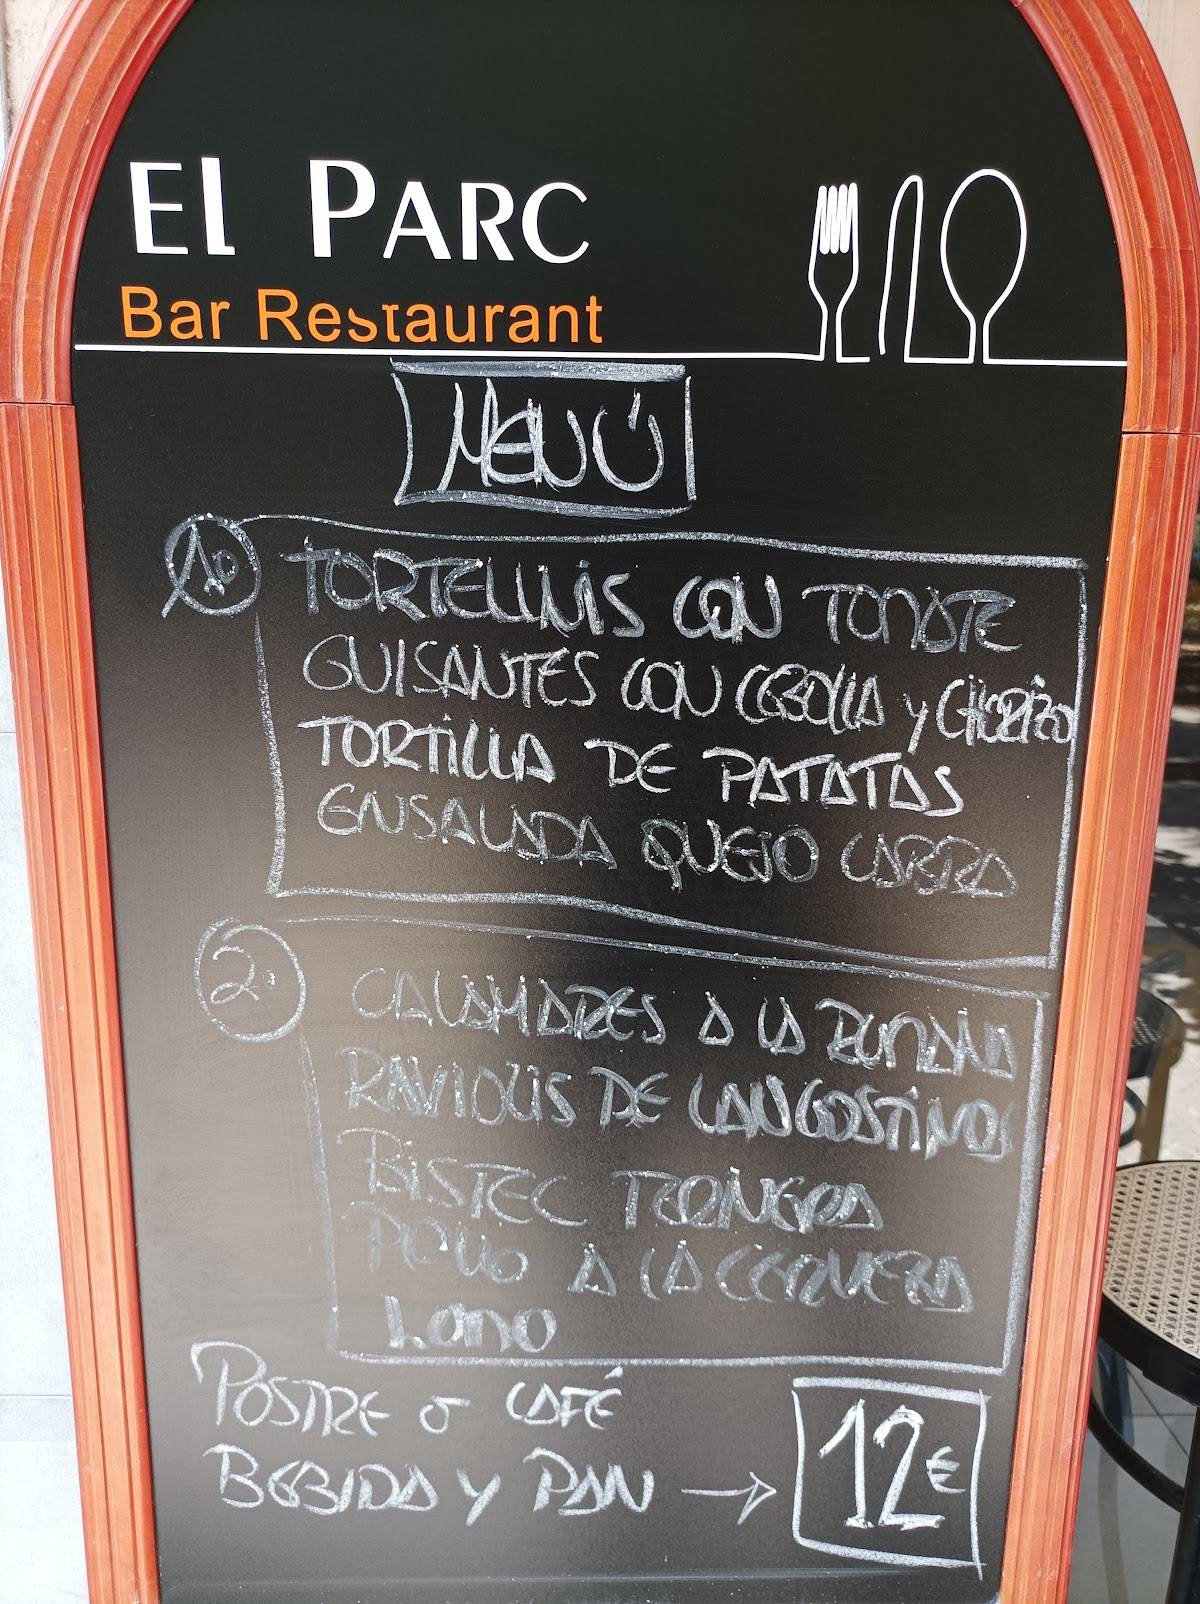 El Parc
Bar Restaurant
MENÚ
1o TORTELLINIS CON TOMATE
GUISANTES CON CEBOLLA y CHORIZO
TORTILLA DE PATATAS
ENSALADA QUESO CABRA
2o CALAMARES A LA ROMANA
RAVIOLIS DE LANGOSTINOS
BISTEC TERNERA
POLLO A LA CERVEZA
LOMO
POSTRE O CAFÉ
BEBIDA Y PAN → 12€